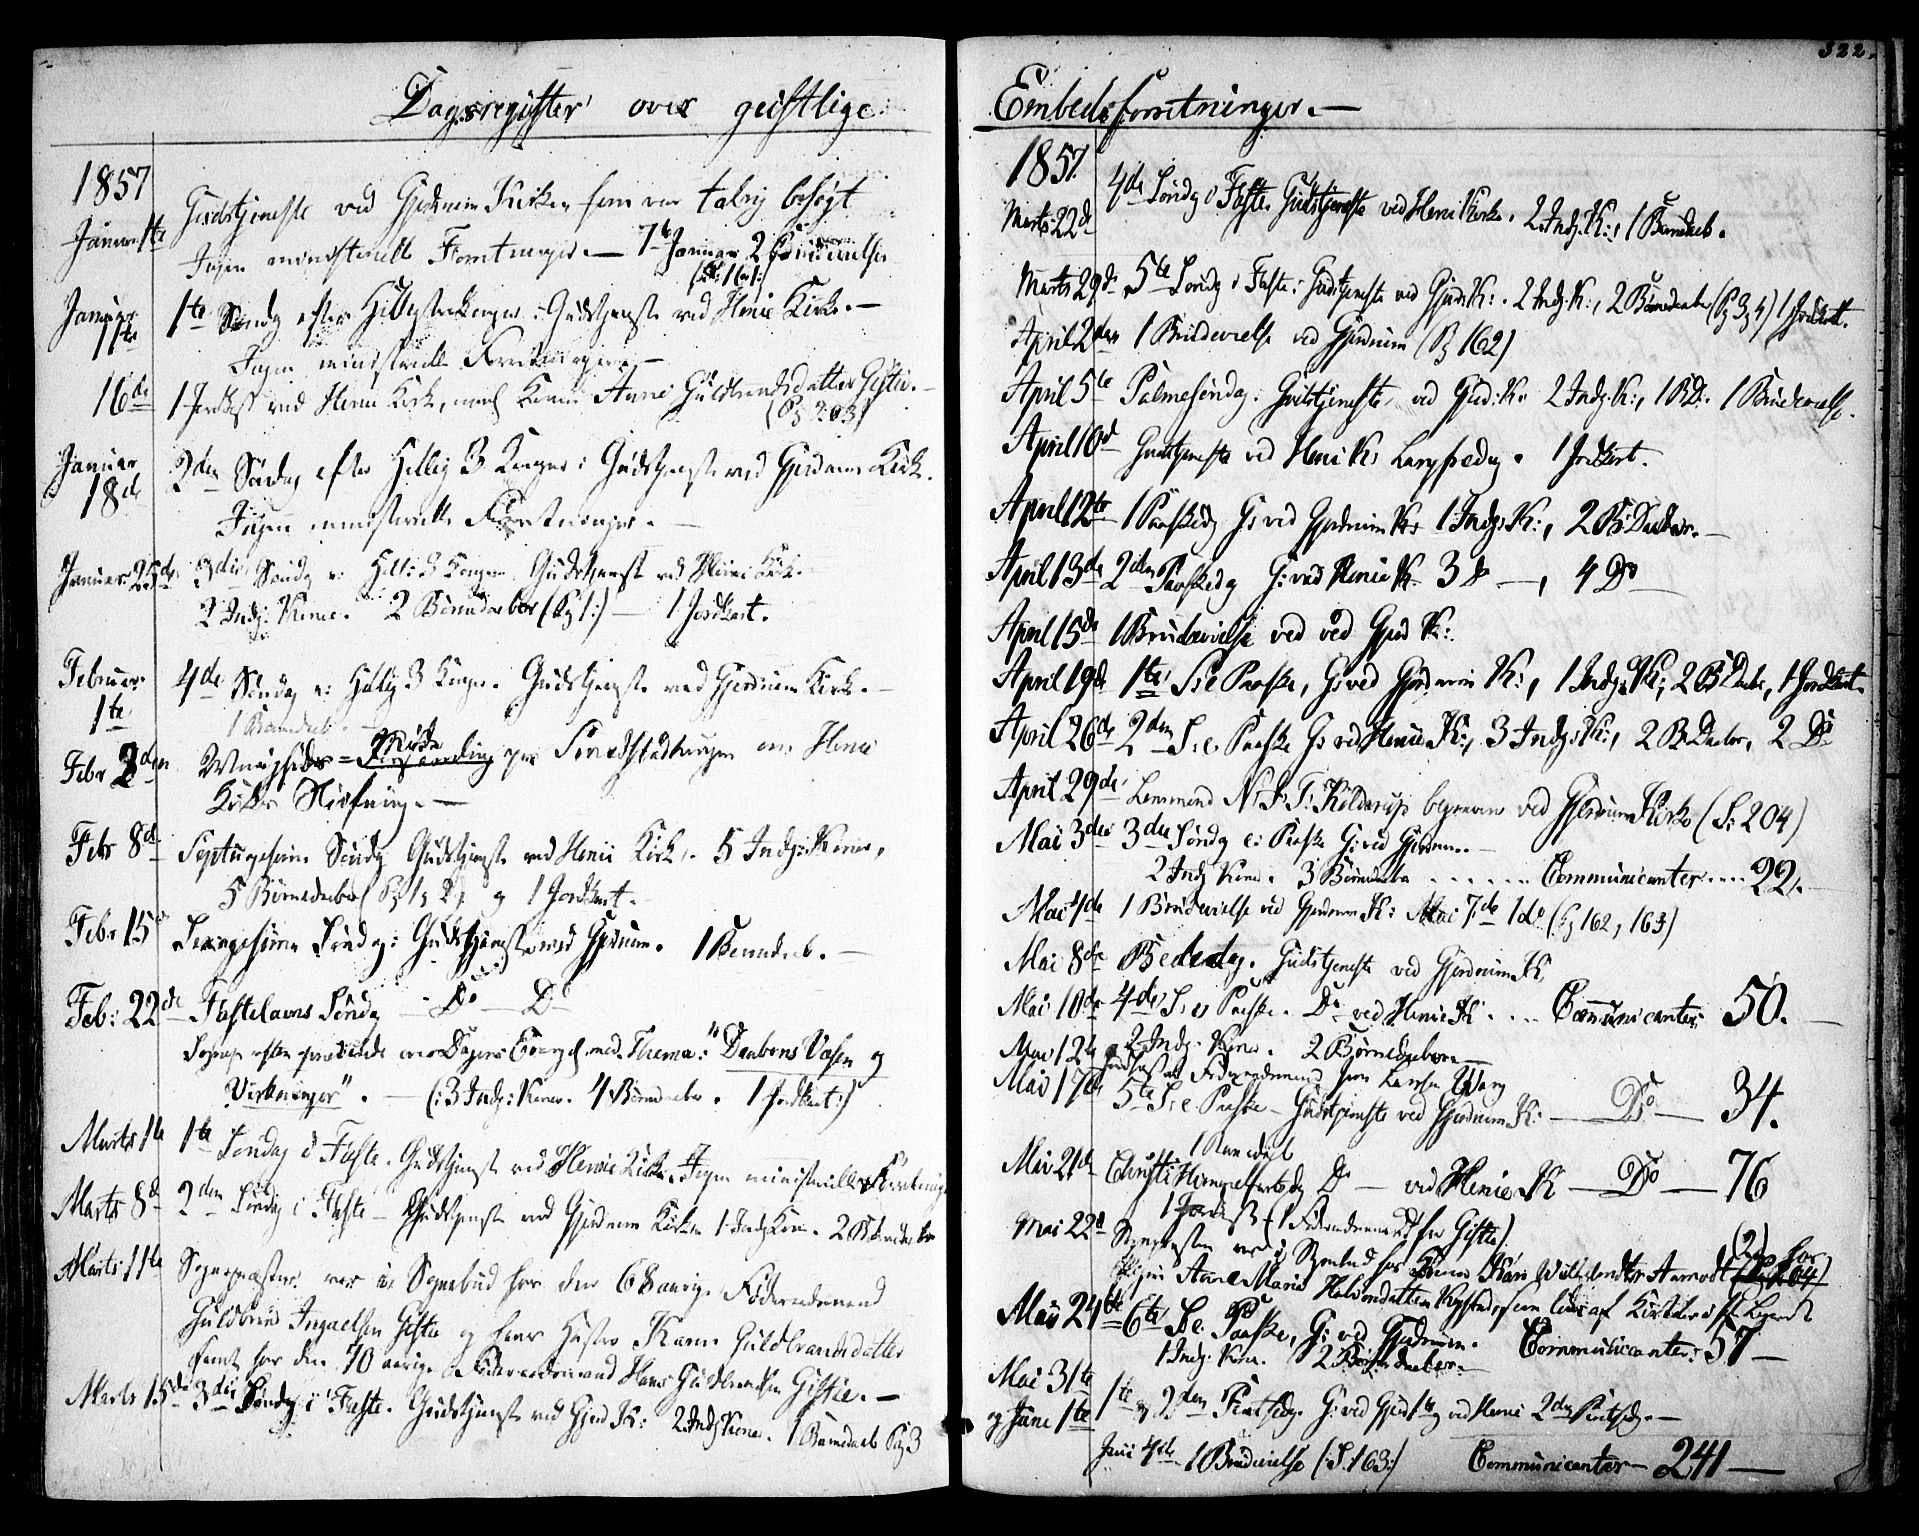 Dagsregister over geistlige
1857
Januar 1te Gudstjeneste ved Gjerdrum Kirke, som var talrig besøgt
Ingen ministerielle Forretninger. — 7de Januar 2 Brudevielser
(S. 161:)
Januar 11te 1te Søndg efter Hellig tre Konger: Gudstjeneste ved Henie Kirke. —
Ingen ministerielle Forretninger. —
16de 1 Jordfæst ved Henie Kirke, Anne Guldbrandsdatter Gistie. —
(Pg 203)
Januar 18de 2den Søndag efter Hellig 3 Konger: Gudstjeneste ved Gjerdrum Kirke.
Ingen ministerielle Forretninger. —
Januar 25de 3die Søndg e: Hell: 3 Konger. Gudstjeneste ved Henie Kirke.
2 Indg: Koner. 2 Børnedaaber (Pg 1:) — 1 Jordkast.
Februar 1te 4de Søndag e: Hellig 3 Konger. Gudstjeneste ved Gjerdrum Kirke. —
1 Barnedaab. —
Febr 2den Henie
Kirkes —
Febr 8de Septuagesima Søndg Gudstjeneste ved Henie Kirke. 5 Indg: Koner,
5 Børnedaaber (Pg 1, 2) og 1 Jordkast. —
Febr 15de Sexagesima Søndag: Gudstjeneste ved Gjerdrum. 1 Barnedaab. —
Feb: 22de Fastelavns Søndag — Do — Do
over Dagens Evangel. med Thema: "Daabens Væsen og
Virkninger". — (: 3 Indg: Koner. 4 Børnedaaber. 1 Jordkast:)
Marts 1te 1te Søndag i Faste. Gudstjeneste ved Henie Kirke. Ingen ministerielle Forretninger
Marts 8de 2den Søndag i Faste — Gudstjeneste ved Gjerdrum Kirke 1 Indg Kone. 2 Børnedaaber
Marts 11te Sognepræsten var i Sognebud hos den 68 aarige Føderaadsmand
Guldbrand Ingvelsen Gistie og hans Hustro Karen Guldbrandsdatter
samt hos den 70 aarige Føderaadsmand Hans Guldbrandsen Gistie. —
Marts 15de 3die Søndg i Faste. Gudstjeneste ved Gjerd K: 2 Indg Koner. 1 Barnedaab Pg 3
322.
Embedsforretninger. —
1857.
Marts 22de 4de Søndg i Faste. Gudstjeneste ved Henie Kirke. 2 Indg: K:, 1 Barnedaab.
Marts 29de 5te Søndg i Faste: Gudstjeneste ved Gjerd: K:. 2 Indg: K:, 2 Børnedaaber (Pg 3, 4) 1 Jordkast.
April 2den 1 Brudevielse ved Gjerdrum (Pg 162)
April 5te Palmesøndag. Gudstjeneste ved Gjerd: K: 2 Indg: K:, 1 B D. 1 Brudevielse.
April 10de Gudstjeneste ved Henie K: Langfredag. 1 Jordkast.
April 12te 1 Paaskedg G: ved Gjerdrum K: 1 Indg: K:, 2 B: Daaber. —
April 13de 2den Paaskedag G: ved Henie K. 3 Do —, 4 Do
April 15de 1 Brudevielse ved ved Gjerd K:
April 19de 1te S: e Paaske, G: ved Gjerdrum K:, 1 Indg: K:, 2 B Daaber, 1 Jordkast.
April 26de 2den S: e. Paaske G: ved Henie K:, 3 Indg: K:, 2 B Daaber, 2 Do
April 29de Lensmand N: S: T: Kolderup begraven ved Gjerdrum Kirke (S: 204)
Mai 3die 3die Søndg e: Paaske G: ved Gjerdrum. —
2 Indg Koner. 3 Børnedaaber ...... Communicanter .... 22. —
Mai 4de 1 Brudevielse ved Gjerdrum K: Mai 7de 1 do (Pg 162, 163)
Mai 8de Bededag. Gudstjeneste ved Gjerdrum K.
Mai 10de 4de S: e: Paaske. Do ved Henie K: ... Communicanter: 50. —
2 Indg. Koner. 2 Børnedaaber —
Mai 12te Jordfæstet Føderaadsmand Larsen
Mai 17de 5te S: e Paaske — Gudstjeneste ved Gjerdrum K: — Do — 34.
1 Barnedaab
Mai 21de Christi Himmelfartsdg Do — ved Henie K — Do — 76
1 Jordfæst (1 Føderaadsmand fra Gistie)
Mai 22de Sognepræsten var i Sognebud hos Konen Kari (2) hos
Pigen Anne Marie Halvorsdatter som lider af
Mai 24de 6te S. e. Paaske, G: ved Gjerdrum. Communicanter: 57 —
1 Indg. Kone. 2 Børnedaaber. —
Mai 31te 1te og 2den Pintsedg. G: ved Gjerd 1te og ved Henie 2den Pintsedg. —
og Juni 1te
Juni 4de 1 Brudevielse (: S. 163:) Communicanter — 241 —